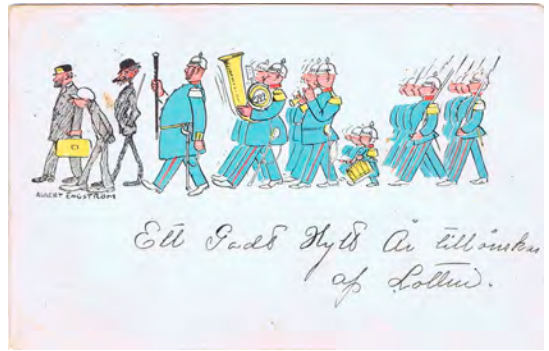 ALBERT ENGSTRÖM
Ett Godt Nytt År tillönskas
af Lotten.